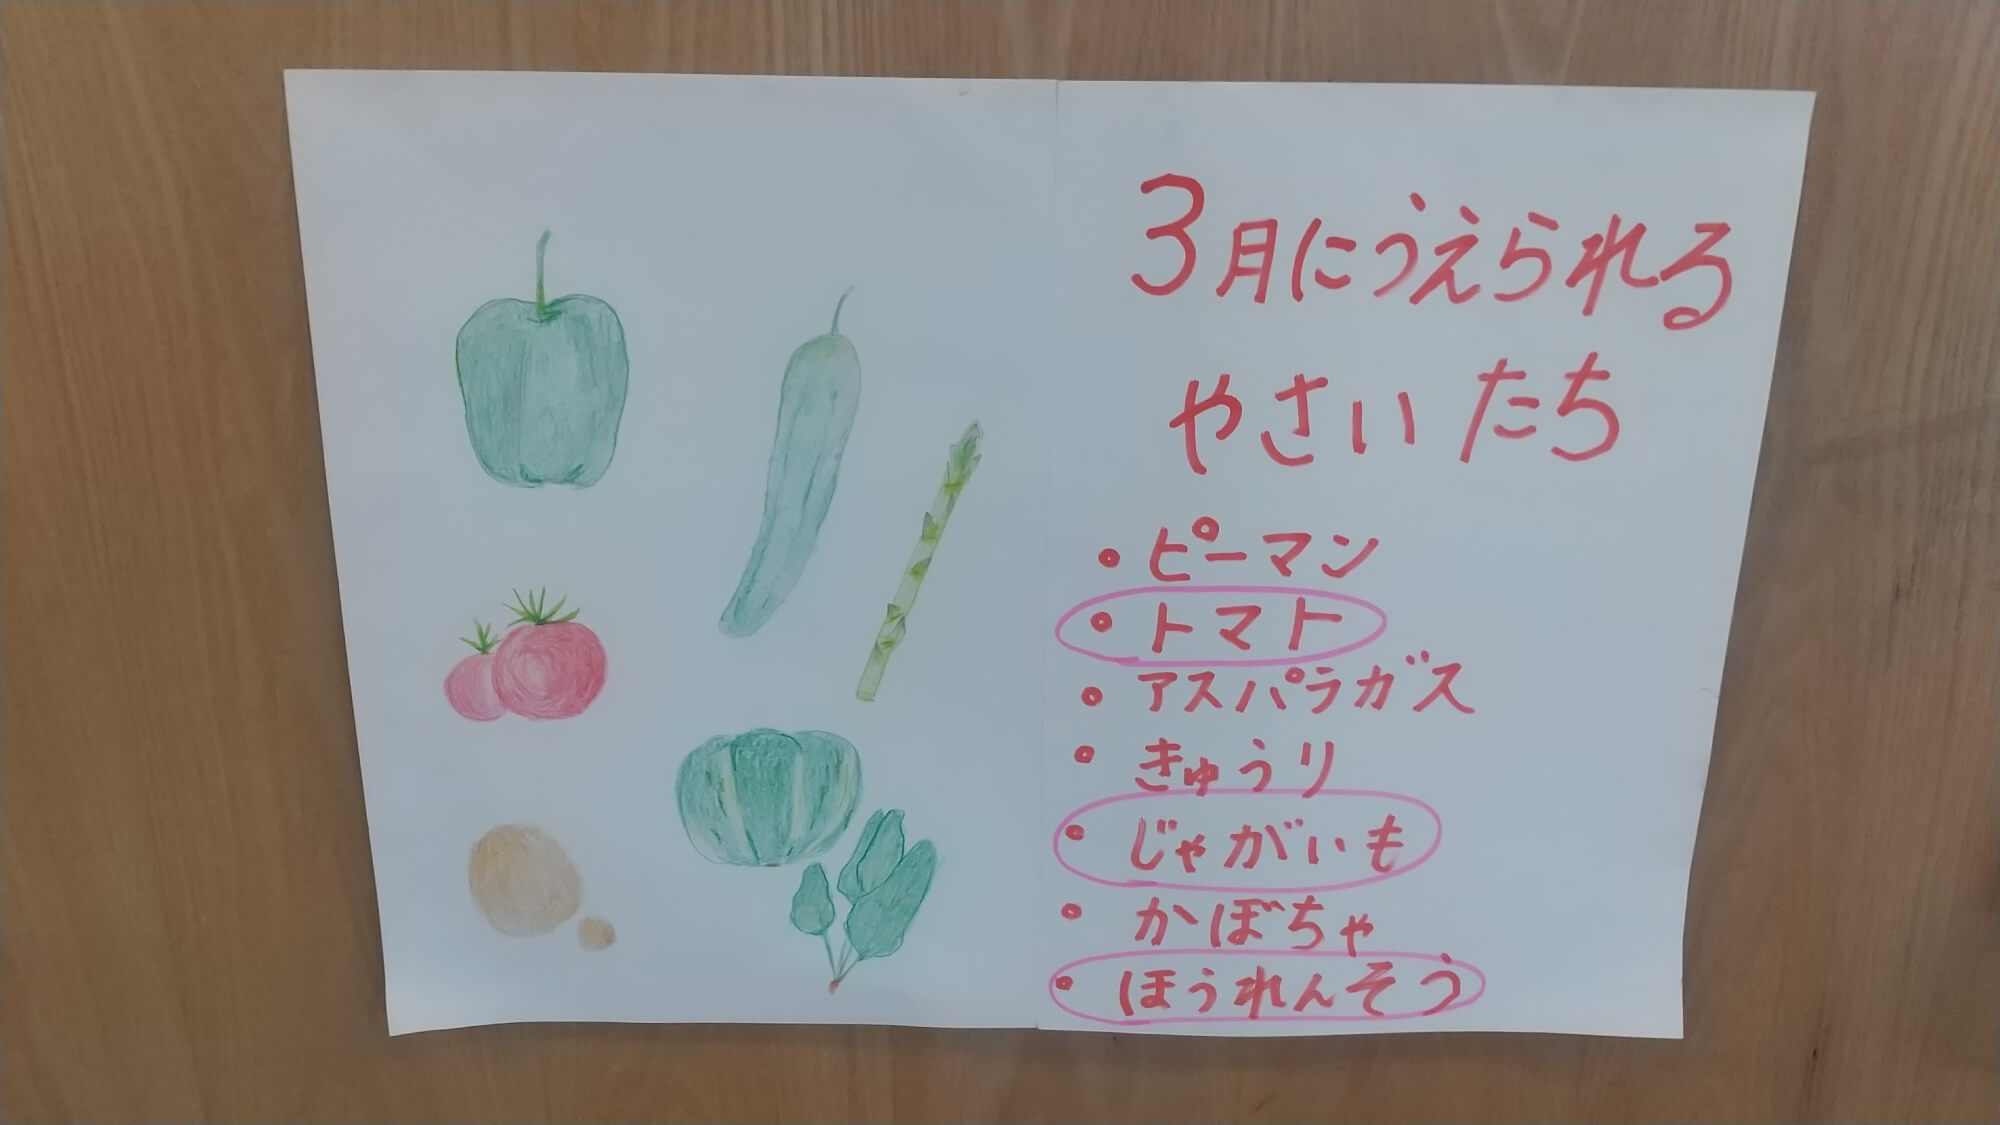 3月にうえられる
やさいたち
・ピーマン
・トマト
・アスパラガス
・きゅうり
・じゃがいも
・かぼちゃ
・ほうれんそう